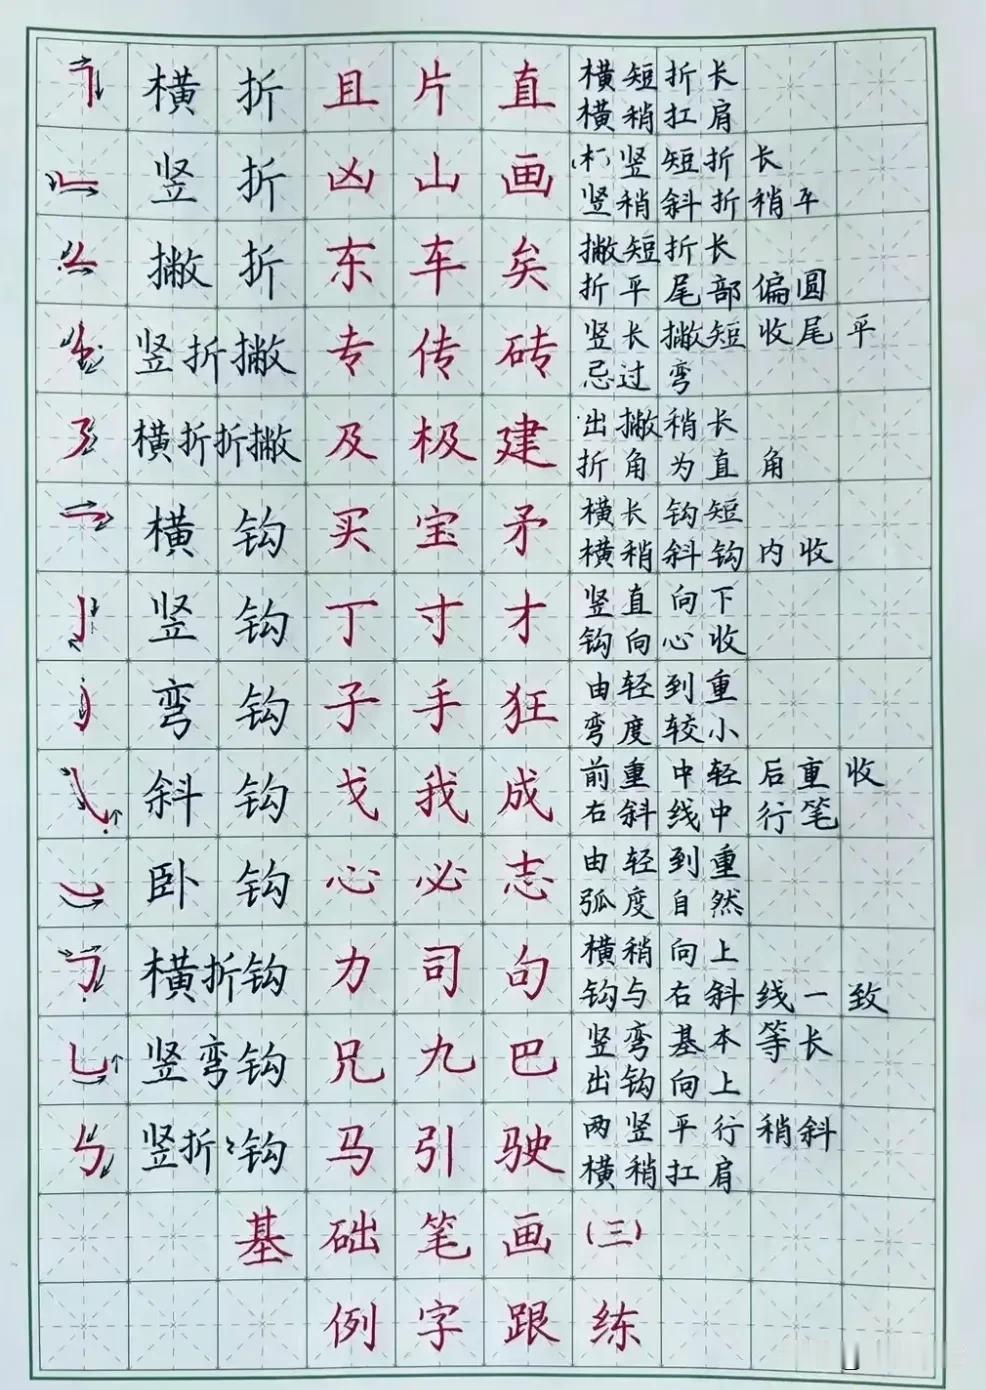 横折 且片直 横短折长
横稍扛肩
竖折 凶山画 竖短折长
竖稍斜折稍平
撇折 东车矣 撇短折长
折平尾部偏圆
竖折撇 专传砖 竖长撇短收尾平
忌过弯
横折折撇 及极建 出撇稍长
折角为直角
横钩 买宝矛 横长钩短
横稍斜钩内收
竖钩 丁寸才 竖直向下
钩向心收
弯钩 子手狂 由轻到重
弯度较小
斜钩 戈我成 前重中轻后重收
右斜线中行笔
卧钩 心必志 由轻到重
弧度自然
横折钩 力司句 横稍向上
钩与右斜线一致
竖弯钩 兄九巴 竖弯基本等长
出钩向上
竖折⺀钩 马引驶 两竖平行稍斜
横稍扛肩
基础笔画(三)
例字跟练